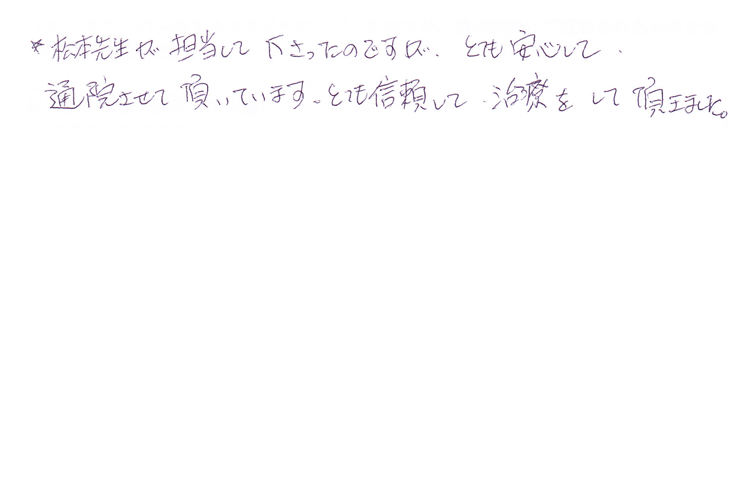 *松本先生が担当して下さったのですが、とても安心して、
通院させて頂いています。とても信頼して、治療をして頂きました。